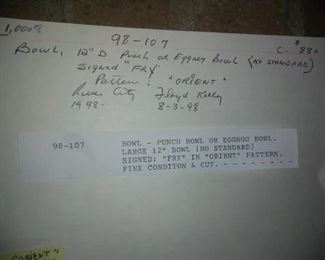 1,000⁰⁰
98-107
C- $880
Bowl, 12" D Punch or Eggnog Bowl (No Standard)
Signed "Fry"
Pattern: "ORIENT"
River City Floyd Kelly
1998- 8-3-98
98-107 BOWL - PUNCH BOWL OR EGGNOG BOWL.
LARGE 12" BOWL (NO STANDARD)
SIGNED: "FRY" IN "ORIENT" PATTERN.
FINE CONDITON & CUT. - - - - - - - -
"ORIENT"